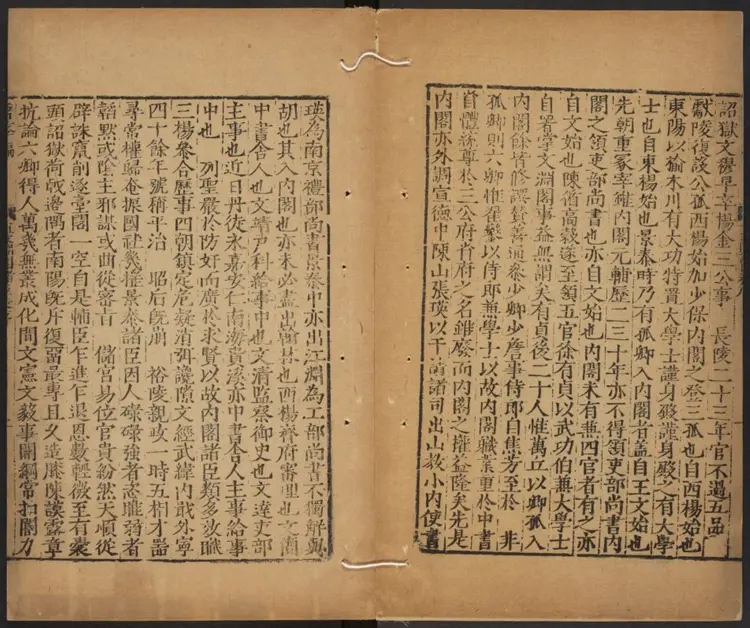 詔獄文學早卒楊金三公事 長陵二十三年官不過五品
獻陵復設公孤西楊始加少保內閣之登三孤也自西楊始也
東陽以榆木川有大功特置大學士謹身殿謹身殿之有大學
士也自東楊始也景泰時乃有孤卿入內閣者蓋自王文始也
先朝重冢宰雖內閣元輔歷二三十年亦不得領吏部尚書內
閣之領吏部尚書也亦自文始也內閣未有兼四官者有之亦
自文始也陳循高穀遂至領五官徐有貞以武功伯兼大學士
自署掌文淵閣事益無謂矣有貞後二十人惟萬立以卿孤入
內閣餘皆修譔贊善通叅少卿少詹事侍郎自焦芳至於 非
孤卿則六卿惟翟鑾以侍郎兼學士以故內閣職業重於中書
首體統尊於三公府省府之名雖廢而內閣之權益隆矣先是
內閣亦外調宣德中陳山張瑛以干請諸司出山教小內使書
瑛為南京禮部尚書景泰中亦出江淵為工部尚書不獨解與
胡也其入內閣也亦未必盡出翰林也西楊齊府審理也文簡
中書舍人也文靖戶科給事中也文清監察御史也文達吏部
主事也近日丹徒永嘉安仁南海貴溪亦中書舍人主事給事
中也 列聖嚴於防奸而廣於求賢以故內閣諸臣類多效職
三楊叅合歷事四朝鎮定危疑消弭讒隙文經武緯內戢外寧
四十餘年號稱平治 昭后旣崩 裕陵親政一時五相才器
尋常權歸奄振國社幾搖景泰諸臣因人碌碌強者恣睢弱者
韜默或陰主邪謀或曲從密旨 儲宮易位官賞紛然天順從
辟誅竄削逐臺閣一空自是輔臣乍進乍退恩數輕微至有蒙
頭詔獄荷戟邊隅者南陽旣斥復留最專且久造膝陳謨露章
抗論六卿得人萬幾無叢成化間文憲文毅事關綱常扣閽力